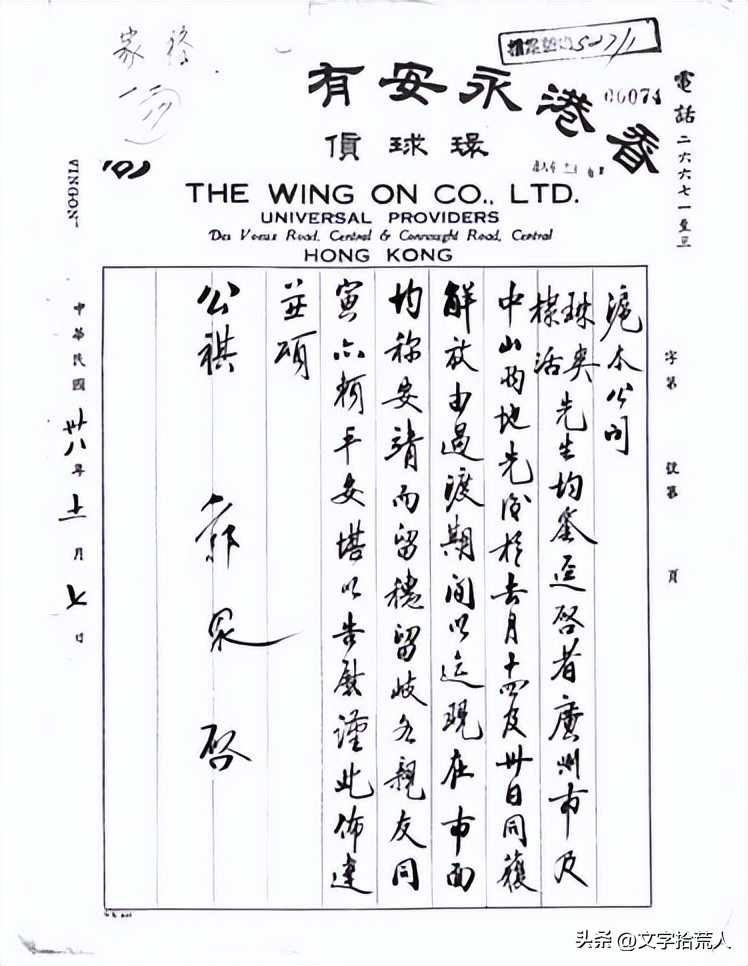 家
527/1
00074
香港永安有
環球貨
電話二六六七一至三
WINGON
THE WING ON CO., LTD.
UNIVERSAL PROVIDERS
Des Voeux Road, Central & Connaught Road, Central
HONG KONG
字第 號第 頁
滬本公司
琳爽
棣活
先生均鑒逕啓者廣州市及
中山兩地先後於去月十四及卅日同獲
解放由過渡期間以迄現在市面
均称安靖而留穗留岐各親友同
寅亦頼平安堪以告慰謹此佈達
並頌
公祺 郭泉 啓
中華民國卅八年十一月七日
头条 @文字拾荒人